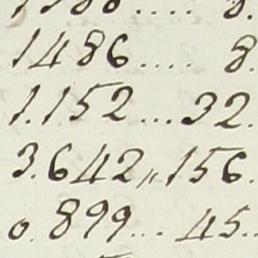 1486.... 8.
1.152...32.
3.642,,156.
0.899...45..